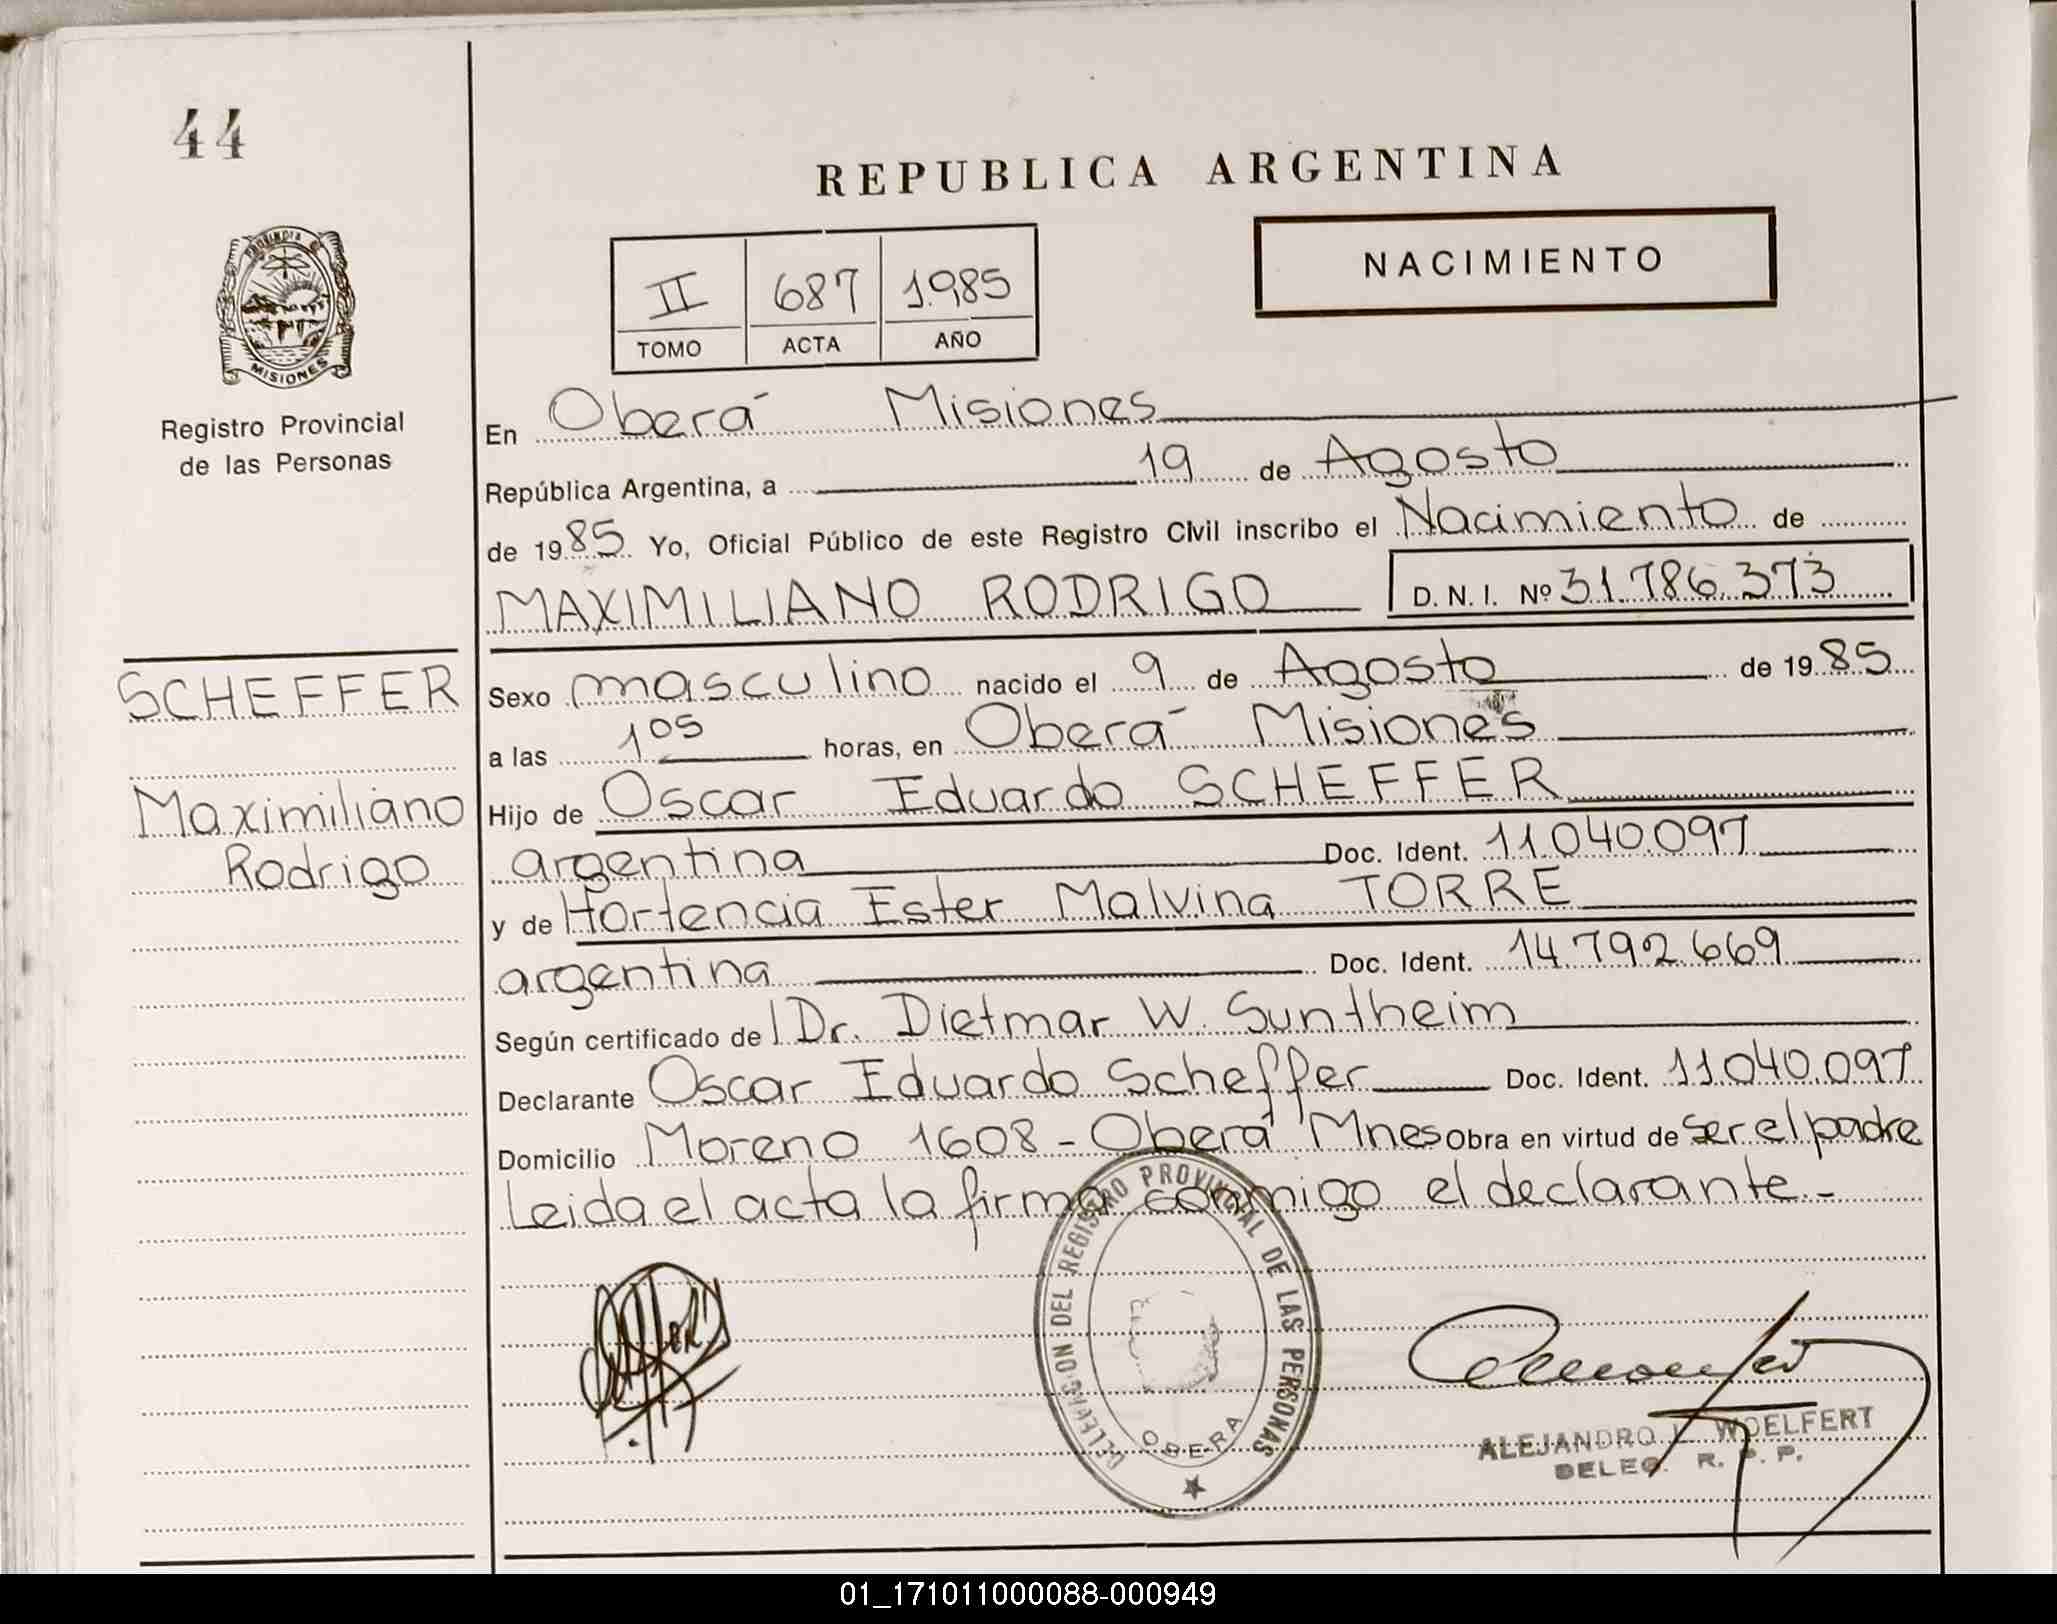 44
REPUBLICA ARGENTINA
NACIMIENTO
II 687 1.985
TOMO ACTA AÑO
PROVINCIA DE
MISIONES
Registro Provincial
de las Personas
En Oberá Misiones
República Argentina, a 19 de Agosto
de 1985 Yo, Oficial Público de este Registro Civil inscribo el Nacimiento de
MAXIMILIANO RODRIGO D. N. I. Nº 31.786.373
SCHEFFER
Maximiliano
Rodrigo
Sexo masculino nacido el 9 de Agosto de 1985
a las 1 05 horas, en Oberá Misiones
Hijo de Oscar Eduardo SCHEFFER
argentina Doc. Ident. 11.040.097
y de Hortencia Ester Malvina TORRE
argentina Doc. Ident. 14.792.669
Según certificado de Dr. Dietmar W. Suntheim
Declarante Oscar Eduardo Scheffer Doc. Ident. 11.040.097
Domicilio Moreno 1608 - Oberá Mnes obra en virtud de ser el padre
Leida el acta la firma conmigo el declarante.-
DELEGACION DEL REGISTRO PROVINCIAL DE LAS PERSONAS
OBERA
ALEJANDRO L. WOELFERT
DELEG. R. P. P.
01_171011000088-000949